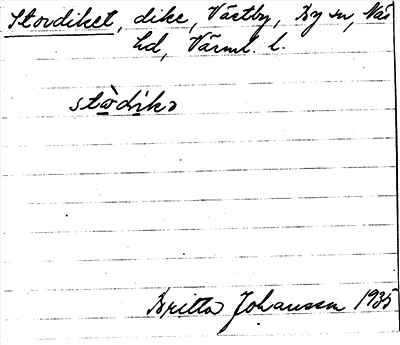 Stordiket, dike, Västby, By sn, Näs
hd, Värml. l.
stòdikə
Britta Johansson 1935